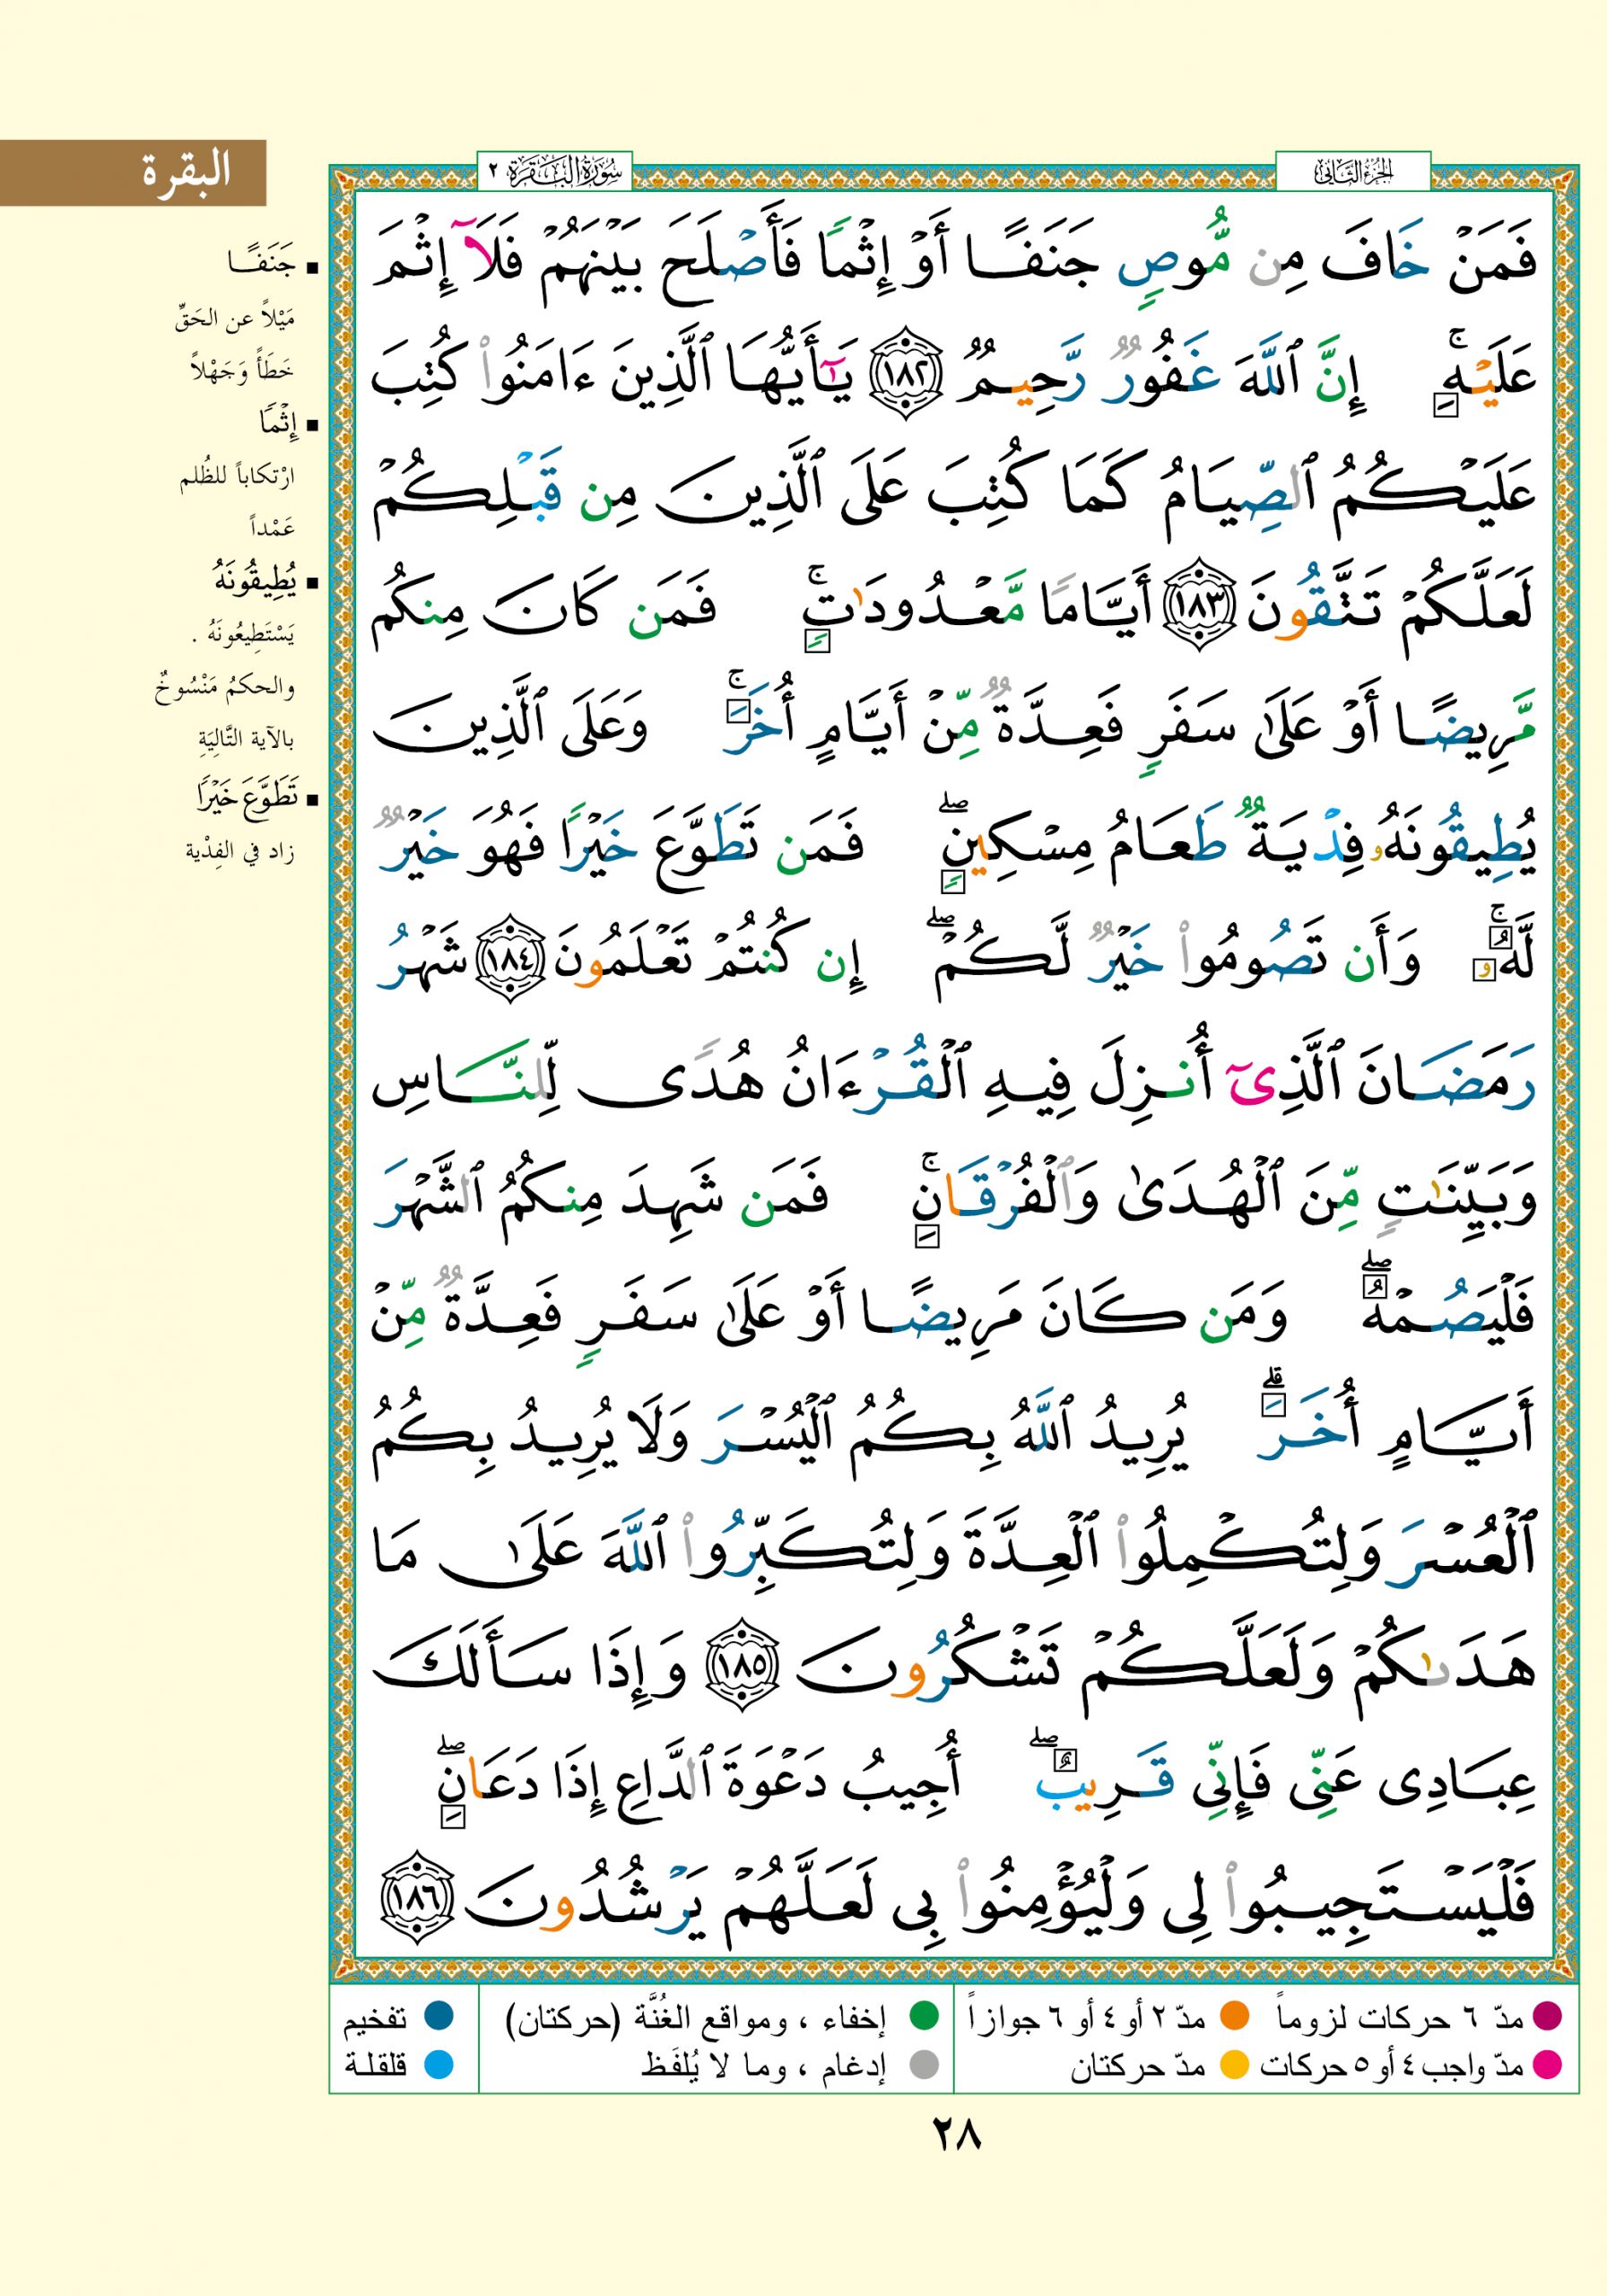 البقرة
الجزء الثاني
سورة البقرة ٢
فَمَنْ خَافَ مِن مُّوصٍ جَنَفًا أَوْ إِثْمًا فَأَصْلَحَ بَيْنَهُمْ فَلَآ إِثْمَ
عَلَيْهِ ۚ إِنَّ ٱللَّهَ غَفُورٌ رَّحِيمٌ ١٨٢ يَٰٓأَيُّهَا ٱلَّذِينَ ءَامَنُوا۟ كُتِبَ
عَلَيْكُمُ ٱلصِّيَامُ كَمَا كُتِبَ عَلَى ٱلَّذِينَ مِن قَبْلِكُمْ
لَعَلَّكُمْ تَتَّقُونَ ١٨٣ أَيَّامًا مَّعْدُودَٰتٍ ۚ فَمَن كَانَ مِنكُم
مَّرِيضًا أَوْ عَلَىٰ سَفَرٍ فَعِدَّةٌ مِّنْ أَيَّامٍ أُخَرَ ۚ وَعَلَى ٱلَّذِينَ
يُطِيقُونَهُۥ فِدْيَةٌ طَعَامُ مِسْكِينٍ ۖ فَمَن تَطَوَّعَ خَيْرًا فَهُوَ خَيْرٌ
لَّهُۥ ۚ وَأَن تَصُومُوا۟ خَيْرٌ لَّكُمْ ۖ إِن كُنتُمْ تَعْلَمُونَ ١٨٤ شَهْرُ
رَمَضَانَ ٱلَّذِىٓ أُنزِلَ فِيهِ ٱلْقُرْءَانُ هُدًى لِّلنَّاسِ
وَبَيِّنَٰتٍ مِّنَ ٱلْهُدَىٰ وَٱلْفُرْقَانِ ۚ فَمَن شَهِدَ مِنكُمُ ٱلشَّهْرَ
فَلْيَصُمْهُ ۖ وَمَن كَانَ مَرِيضًا أَوْ عَلَىٰ سَفَرٍ فَعِدَّةٌ مِّنْ
أَيَّامٍ أُخَرَ ۗ يُرِيدُ ٱللَّهُ بِكُمُ ٱلْيُسْرَ وَلَا يُرِيدُ بِكُمُ
ٱلْعُسْرَ وَلِتُكْمِلُوا۟ ٱلْعِدَّةَ وَلِتُكَبِّرُوا۟ ٱللَّهَ عَلَىٰ مَا
هَدَىٰكُمْ وَلَعَلَّكُمْ تَشْكُرُونَ ١٨٥ وَإِذَا سَأَلَكَ
عِبَادِى عَنِّى فَإِنِّى قَرِيبٌ ۖ أُجِيبُ دَعْوَةَ ٱلدَّاعِ إِذَا دَعَانِ ۖ
فَلْيَسْتَجِيبُوا۟ لِى وَلْيُؤْمِنُوا۟ بِى لَعَلَّهُمْ يَرْشُدُونَ ١٨٦
▪ جَنَفًا
مَيْلاً عن الحَقِّ
خَطَأً وَجَهْلاً
▪ إِثْمًا
ارْتكاباً للظُلم
عَمْداً
▪ يُطِيقُونَهُ
يَسْتَطِيعُونَهُ .
والحكمُ مَنْسُوخٌ
بالآية التَّالِيَةِ
▪ تَطَوَّعَ خَيْرًا
زاد في الفِدْية
مدّ ٦ حركات لزوماً مدّ ٢ أو ٤ أو ٦ جوازاً
مدّ واجب ٤ أو ٥ حركات مدّ حركتان
إخفاء ، ومواقع الغُنَّة (حركتان)
إدغام ، وما لا يُلفَظ
تفخيم
قلقلة
٢٨